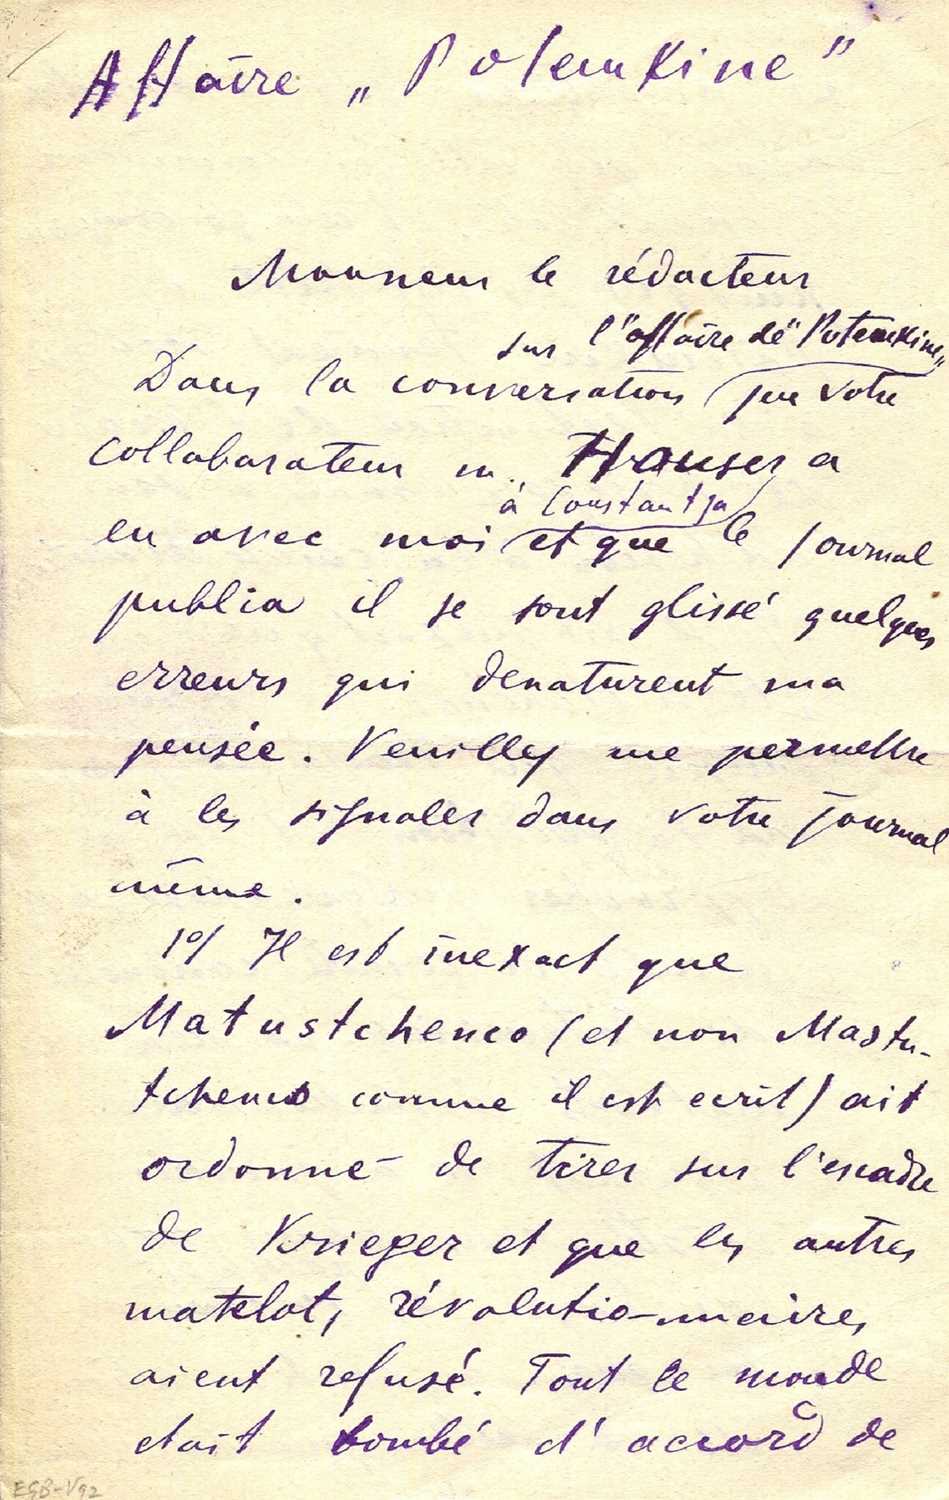 Affaire „Potemkine”
Monsieur le rédacteur
sur l'"affaire de "Potemkine„
Dans la conversation que votre
collaborateur m. Hauser a
à Constantza
eu avec moi et que le journal
publia il se sont glissé quelques
erreurs qui denaturent ma
pensée. Veuillez me permettre
à les signaler dans votre journal
même.
1º/ Il est inexact que
Matustchenco (et non Mastu-
tchenco comme il est ecrit) ait
ordonné de tirer sur l'escadre
de Krieger et que les autres
matelots révolutio-nnaires
aient refusé. Tout le monde
etait tombé d'accord de
EGB-V92